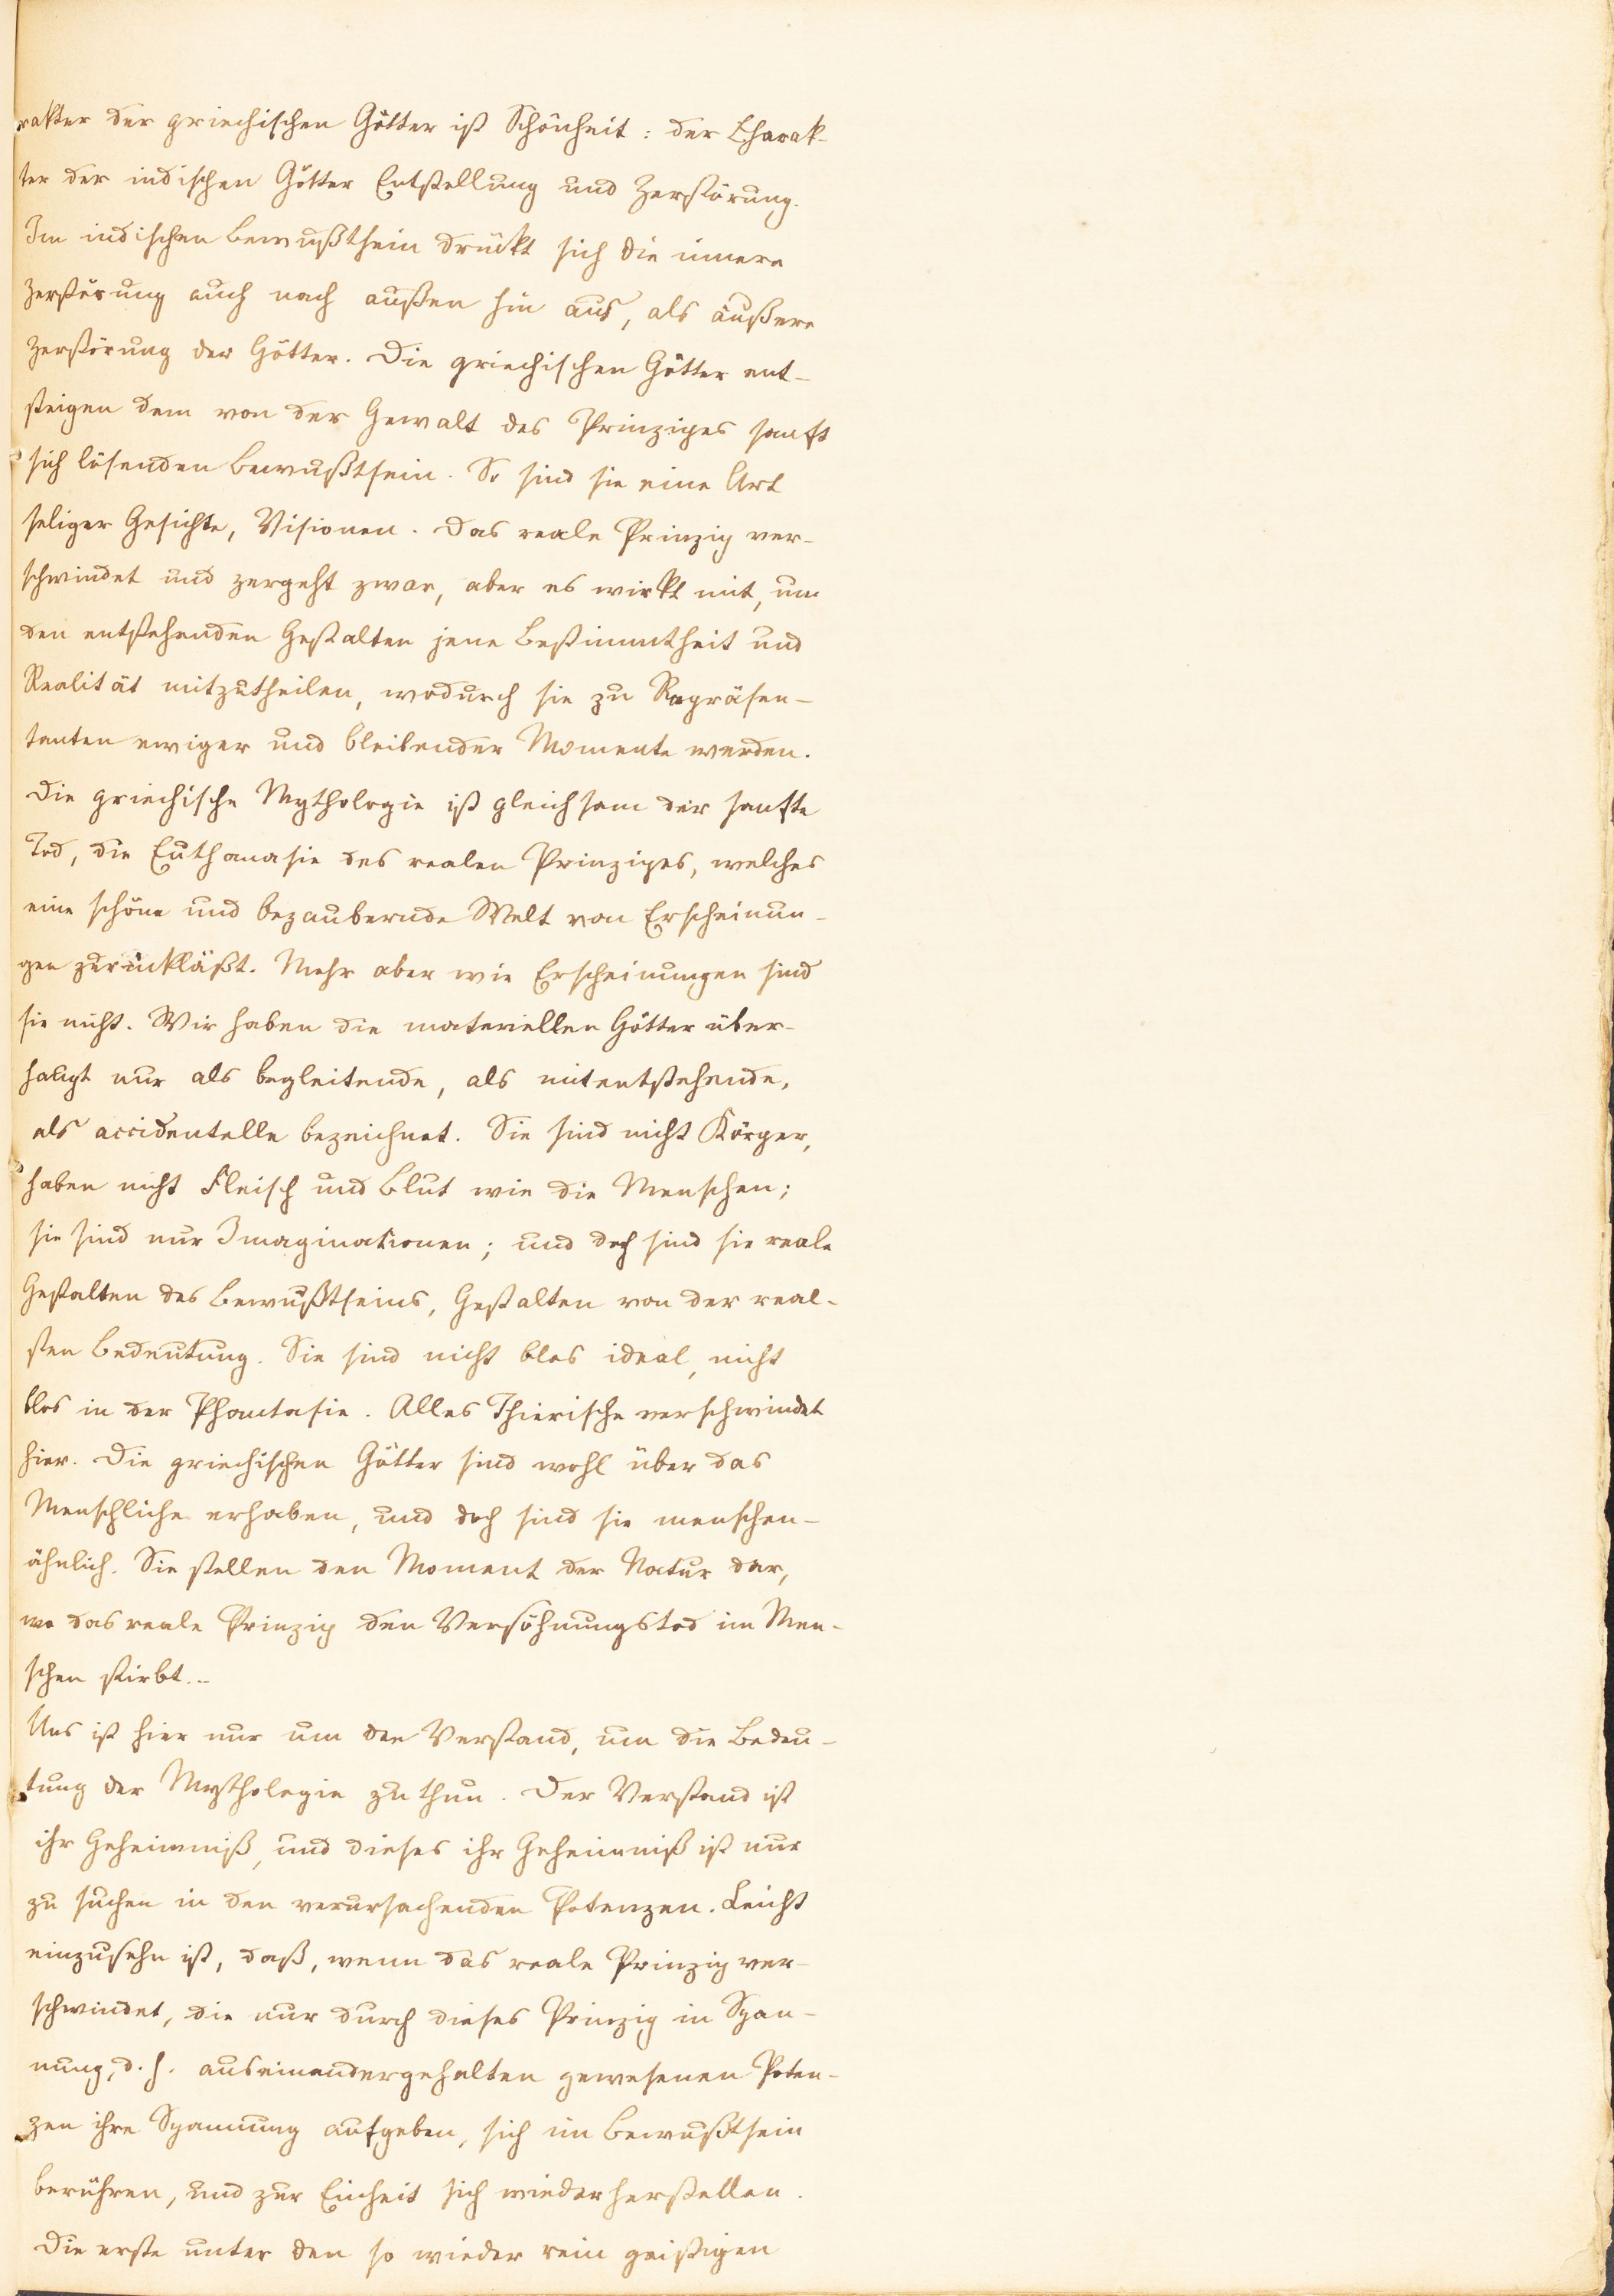 rakter der griechischen Götter ist Schönheit: der Charak-
ter der indischen Götter Entstellung und Zerstörung.
Im indischen Bewußtsein drückt sich die innere
Zerstörung auch nach außen hin aus, als äußere
Zerstörung der Götter. Die griechischen Götter ent-
steigen dem von der Gewalt des Prinzipes sanft
sich lösenden Bewußtsein. So sind sie eine Art
seliger Gesichte, Visionen. Das reale Prinzip ver-
schwindet und zergeht zwar, aber es wirkt mit, um
den entstehenden Gestalten jene Bestimmtheit und
Realität mitzutheilen, wodurch sie zu Repräsen-
tanten ewiger und bleibender Momente werden.
Die griechische Mythologie ist gleichsam der sanfte
Tod, die Euthanasie des realen Prinzipes, welches
eine schöne und bezaubernde Welt von Erscheinun-
gen zurückläßt. Mehr aber wie Erscheinungen sind
sie nicht. Wir haben die materiellen Götter über-
haupt nur als begleitende, als mitentstehende,
als accidentelle bezeichnet. Sie sind nicht Körper,
haben nicht Fleisch und Blut wie die Menschen;
sie sind nur Imaginationen; und doch sind sie reale
Gestalten des Bewußtseins, Gestalten von der real-
sten Bedeutung. Sie sind nicht blos ideal, nicht
blos in der Phantasie. Alles Thierische verschwindet
hier. Die griechischen Götter sind wohl über das
Menschliche erhaben, und doch sind sie menschen-
ähnlich. Sie stellen den Moment der Natur dar,
wo das reale Prinzip den Versöhnungstod im Men-
schen stirbt...
Uns ist hier nur um den Verstand, um die Bedeu-
tung der Mythologie zu thun. Der Verstand ist
ihr Geheimniß, und dieses ihr Geheimniß ist nur
zu suchen in den verursachenden Potenzen. Leicht
einzusehn ist, daß, wenn das reale Prinzip ver-
schwindet, die nur durch dieses Prinzip in Span-
nung, d. h. auseinandergehalten gewesenen Poten-
zen ihre Spannung aufgeben, sich im Bewußtsein
berühren, und zur Einheit sich wiederherstellen.
Die erste unter den so wieder rein geistigen